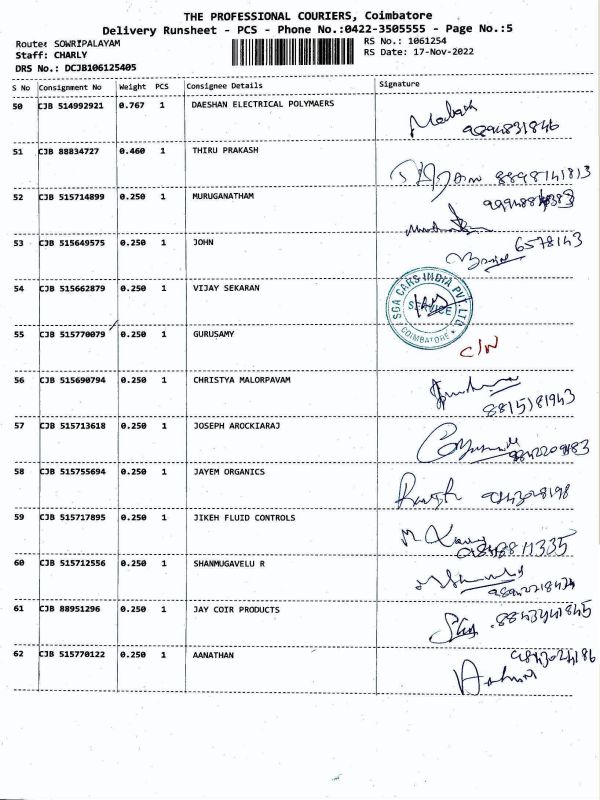 THE PROFESSIONAL COURIERS, Coimbatore
Delivery Runsheet - PCS - Phone No.:0422-3505555 - Page No.:5
Route: SOWRIPALAYAM RS No.: 1061254
Staff: CHARLY RS Date: 17-Nov-2022
DRS No.: DCJB106125405
S No Consignment No Weight PCS Consignee Details Signature
50 CJB 514992921 0.767 1 DAESHAN ELECTRICAL POLYMAERS
9894831846
51 CJB 88834727 0.460 1 THIRU PRAKASH
8898141813
52 CJB 515714899 0.250 1 MURUGANATHAM
53 CJB 515649575 0.250 1 JOHN
6578143
54 CJB 515662879 0.250 1 VIJAY SEKARAN
SGA CARS INDIA PVT. LTD.
SERVICE
COIMBATORE
55 CJB 515770079 0.250 1 GURUSAMY
C/N
56 CJB 515690794 0.250 1 CHRISTYA MALORPAVAM
8815181943
57 CJB 515713618 0.250 1 JOSEPH AROCKIARAJ
58 CJB 515755694 0.250 1 JAYEM ORGANICS
59 CJB 515717895 0.250 1 JIKEH FLUID CONTROLS
60 CJB 515712556 0.250 1 SHANMUGAVELU R
61 CJB 88951296 0.250 1 JAY COIR PRODUCTS
62 CJB 515770122 0.250 1 AANATHAN